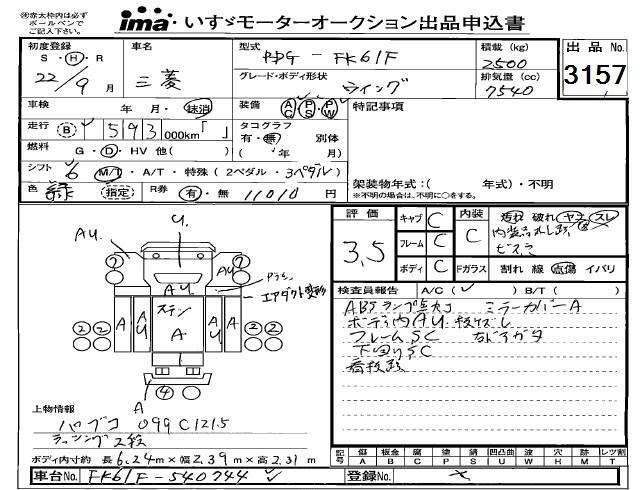 ㊟赤太枠内は必ず
ボールペンで
ご記入下さい。
ima・いすゞモーターオークション出品申込書
初度登録 S・H・R 22/9月
車名 三菱
型式 PDG-FK61F
グレード・ボディ形状 ウイング
積載(kg) 2500
排気量(cc) 7540
出品No. 3157
車検 年 月・抹消
装備 AC PS PW
特記事項
走行 B 593000km「 」
タコグラフ 有・無 別体 ( 年 月)
燃料 G・D・HV 他( )
シフト 6 M/T・A/T・特殊(2ペダル・3ペダル)
架装物年式:( 年式)・不明
※不明の場合は、不明に○をする。
色 緑 指定 R券 有・無 11010円
評価 3.5
キャブ C
フレーム C
ボディ C
内装 C
汚れ 破れ ヤケ スレ
ビス穴
Fガラス 割れ 線 点傷 イバリ
検査員報告 A/C( ✓ ) B/T( )
ABSランプ点灯 ミラーカバーA
ボディ内AU.板キズし
フレームSC 右ドアガタ
下回りSC
看板跡
U.
AU.
AU
エアダクト変形
AU
ステン
A AU A AU A
2 2 2 2 2 2
4
A
上物情報
パブコ 099C1215
ラッシング2段
ボディ内寸約 長6.24m×幅2.39m×高2.31m
記号 傷A 板金B 腐C 塗P 錆S 凹凸曲U 波W 穴H 外M レツ割T
車台No. FK61F-540744
登録No.